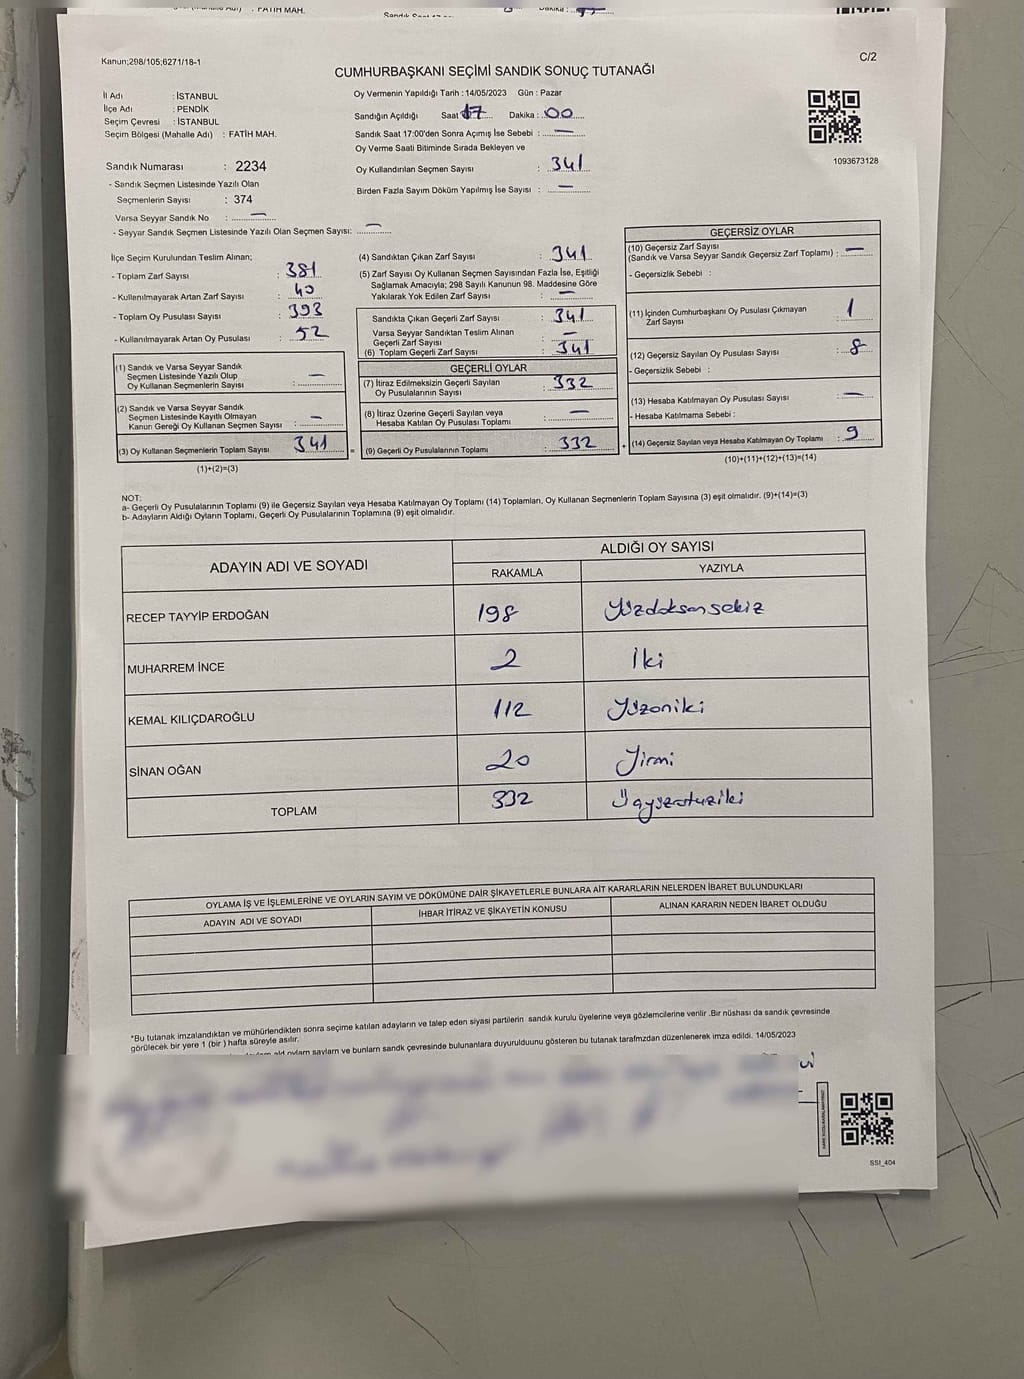 FATİH MAH.
Kanun;298/105;6271/18-1
C/2
CUMHURBAŞKANI SEÇİMİ SANDIK SONUÇ TUTANAĞI
İl Adı : İSTANBUL
İlçe Adı : PENDİK
Seçim Çevresi : İSTANBUL
Seçim Bölgesi (Mahalle Adı) : FATİH MAH.
Sandık Numarası : 2234
- Sandık Seçmen Listesinde Yazılı Olan
Seçmenlerin Sayısı : 374
Varsa Seyyar Sandık No : —
- Seyyar Sandık Seçmen Listesinde Yazılı Olan Seçmen Sayısı: —
Oy Vermenin Yapıldığı Tarih : 14/05/2023 Gün : Pazar
Sandığın Açıldığı Saat 17 Dakika : 00
Sandık Saat 17:00'den Sonra Açımış İse Sebebi : —
Oy Verme Saati Bitiminde Sırada Bekleyen ve
Oy Kullandırılan Seçmen Sayısı : 341
Birden Fazla Sayım Döküm Yapılmış İse Sayısı : —
1093673128
İlçe Seçim Kurulundan Teslim Alınan;
- Toplam Zarf Sayısı : 381
- Kullanılmayarak Artan Zarf Sayısı : 40
- Toplam Oy Pusulası Sayısı : 393
- Kullanılmayarak Artan Oy Pusulası : 52
(1) Sandık ve Varsa Seyyar Sandık
Seçmen Listesinde Yazılı Olup
Oy Kullanan Seçmenlerin Sayısı : —
(2) Sandık ve Varsa Seyyar Sandık
Seçmen Listesinde Kayıtlı Olmayan
Kanun Gereği Oy Kullanan Seçmen Sayısı : —
(3) Oy Kullanan Seçmenlerin Toplam Sayısı 341
(1)+(2)=(3)
(4) Sandıktan Çıkan Zarf Sayısı : 341
(5) Zarf Sayısı Oy Kullanan Seçmen Sayısından Fazla İse, Eşitliği
Sağlamak Amacıyla; 298 Sayılı Kanunun 98. Maddesine Göre
Yakılarak Yok Edilen Zarf Sayısı : —
Sandıkta Çıkan Geçerli Zarf Sayısı : 341
Varsa Seyyar Sandıktan Teslim Alınan
Geçerli Zarf Sayısı : —
(6) Toplam Geçerli Zarf Sayısı : 341
GEÇERLİ OYLAR
(7) İtiraz Edilmeksizin Geçerli Sayılan
Oy Pusulalarının Sayısı : 332
(8) İtiraz Üzerine Geçerli Sayılan veya
Hesaba Katılan Oy Pusulası Toplamı : —
= (9) Geçerli Oy Pusulalarının Toplamı : 332
GEÇERSİZ OYLAR
(10) Geçersiz Zarf Sayısı
(Sandık ve Varsa Seyyar Sandık Geçersiz Zarf Toplamı) : —
- Geçersizlik Sebebi :
(11) İçinden Cumhurbaşkanı Oy Pusulası Çıkmayan
Zarf Sayısı : 1
(12) Geçersiz Sayılan Oy Pusulası Sayısı : 8
- Geçersizlik Sebebi :
(13) Hesaba Katılmayan Oy Pusulası Sayısı : —
- Hesaba Katılmama Sebebi :
(14) Geçersiz Sayılan veya Hesaba Katılmayan Oy Toplamı : 9
(10)+(11)+(12)+(13)=(14)
NOT:
a- Geçerli Oy Pusulalarının Toplamı (9) ile Geçersiz Sayılan veya Hesaba Katılmayan Oy Toplamı (14) Toplamları, Oy Kullanan Seçmenlerin Toplam Sayısına (3) eşit olmalıdır. (9)+(14)=(3)
b- Adayların Aldığı Oyların Toplamı, Geçerli Oy Pusulalarının Toplamına (9) eşit olmalıdır.
ADAYIN ADI VE SOYADI
ALDIĞI OY SAYISI
RAKAMLA YAZIYLA
RECEP TAYYİP ERDOĞAN 198 Yüzdoksansekiz
MUHARREM İNCE 2 İki
KEMAL KILIÇDAROĞLU 112 Yüzoniki
SİNAN OĞAN 20 Yirmi
TOPLAM 332 Üçyüzotuziki
OYLAMA İŞ VE İŞLEMLERİNE VE OYLARIN SAYIM VE DÖKÜMÜNE DAİR ŞİKAYETLERLE BUNLARA AİT KARARLARIN NELERDEN İBARET BULUNDUKLARI
ADAYIN ADI VE SOYADI İHBAR İTİRAZ VE ŞİKAYETİN KONUSU ALINAN KARARIN NEDEN İBARET OLDUĞU
*Bu tutanak imzalandıktan ve mühürlendikten sonra seçime katılan adayların ve talep eden siyasi partilerin sandık kurulu üyelerine veya gözlemcilerine verilir .Bir nüshası da sandık çevresinde
görülecek bir yere 1 (bir ) hafta süreyle asılır.
oyların sayların ve bunların sandk çevresinde bulunanlara duyurulduunu gösteren bu tutanak tarafmzdan düzenlenerek imza edildi. 14/05/2023
SSI_404